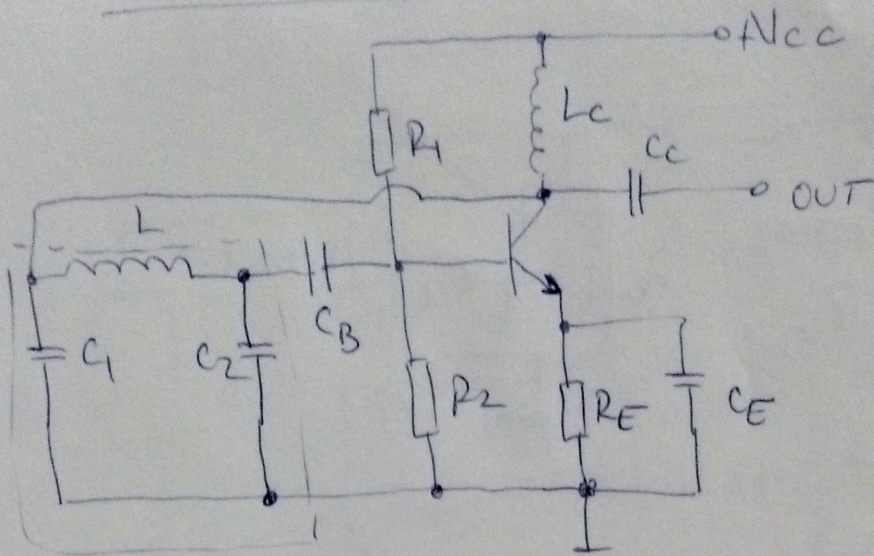 +Vcc
Lc
R1
Cc
OUT
L
CB
C1
C2
R2
RE
CE